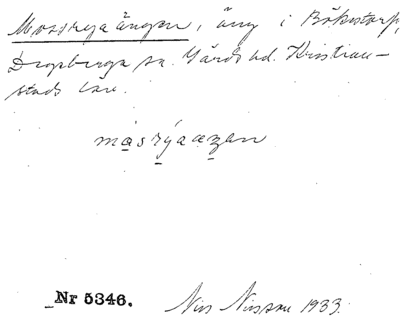 Mosryaängen, äng i Bökestorp,
Degeberga sn. Gärds hd. Kristian-
stads län.
masryaazen
Nr 5346.
Nils Nilsson 1933.